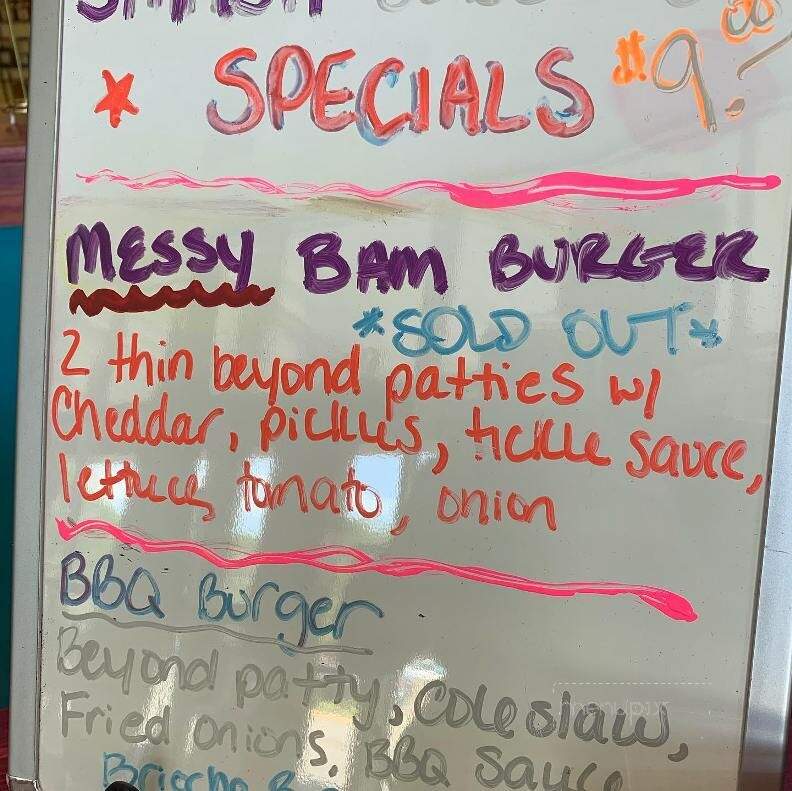 SPECIALS $9.00
MESSY BAM BURGER
*SOLD OUT*
2 thin beyond patties w/
Cheddar, pickles, tickle sauce,
lettuce, tomato, onion
BBQ Burger
Beyond patty, Coleslaw,
Fried onions, BBQ Sauce
menupix